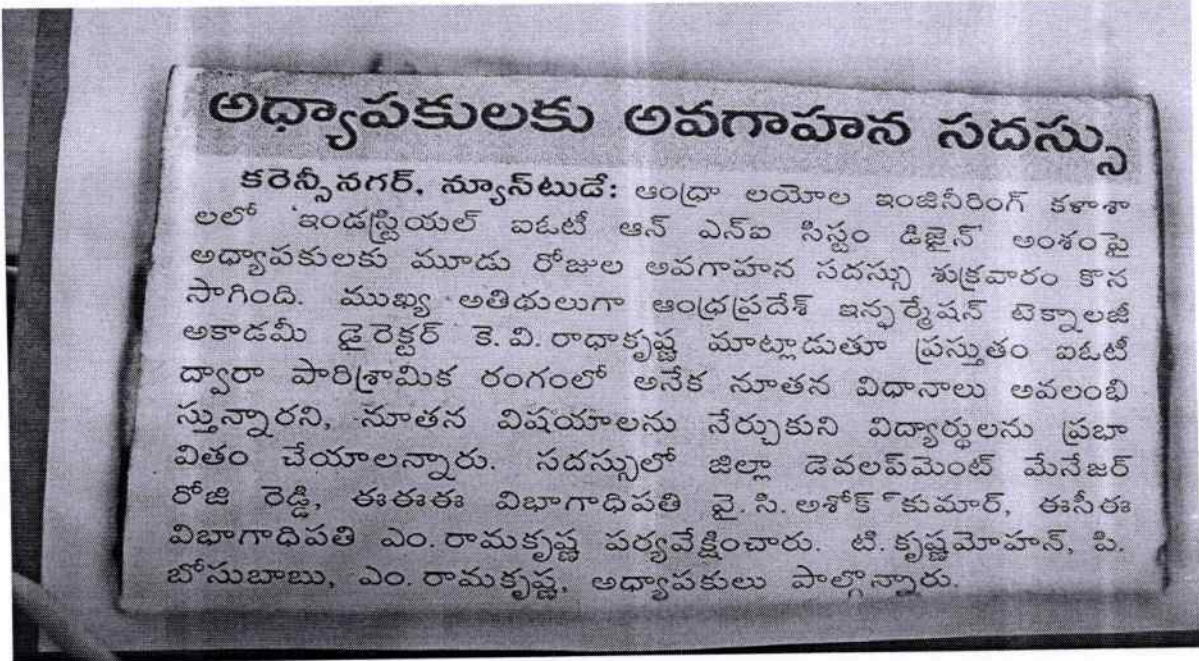 అధ్యాపకులకు అవగాహన సదస్సు
కరెన్సీనగర్, న్యూస్‌టుడే: ఆంధ్రా లయోల ఇంజినీరింగ్ కళాశా
లలో 'ఇండస్ట్రియల్ ఐఓటీ ఆన్ ఎన్ఐ సిస్టం డిజైన్' అంశంపై
అధ్యాపకులకు మూడు రోజుల అవగాహన సదస్సు శుక్రవారం కొన
సాగింది. ముఖ్య అతిథులుగా ఆంధ్రప్రదేశ్ ఇన్ఫర్మేషన్ టెక్నాలజీ
అకాడమీ డైరెక్టర్ కె.వి.రాధాకృష్ణ మాట్లాడుతూ ప్రస్తుతం ఐఓటీ
ద్వారా పారిశ్రామిక రంగంలో అనేక నూతన విధానాలు అవలంబి
స్తున్నారని, నూతన విషయాలను నేర్చుకుని విద్యార్థులను ప్రభా
వితం చేయాలన్నారు. సదస్సులో జిల్లా డెవలప్‌మెంట్ మేనేజర్
రోజి రెడ్డి, ఈఈఈ విభాగాధిపతి వై.సి.అశోక్ కుమార్, ఈసీఈ
విభాగాధిపతి ఎం.రామకృష్ణ పర్యవేక్షించారు. టి.కృష్ణమోహన్, పి.
బోసుబాబు, ఎం.రామకృష్ణ, అధ్యాపకులు పాల్గొన్నారు.